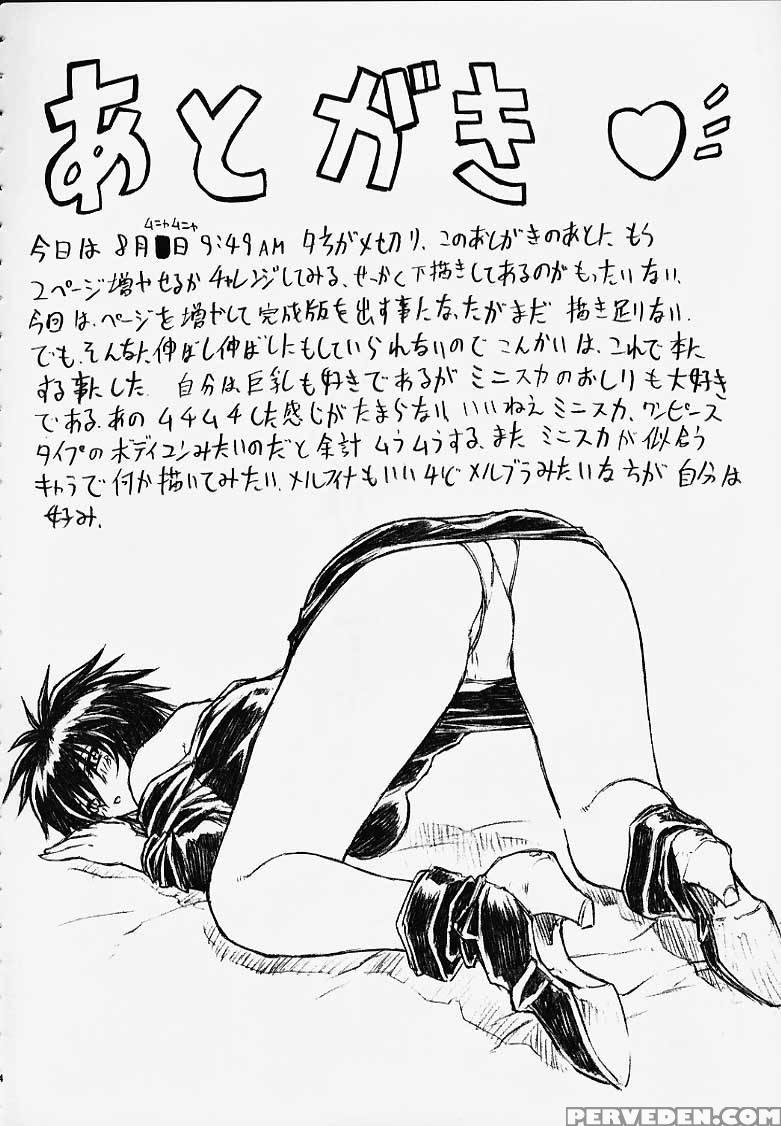 あとがき♡
ムニャムニャ
今日は 8月■日 9:49AM 夕方がメ切り、このあとがきのあとに もう
2ページ増やせるか チャレンジしてみる、せっかく下描きしてあるのがもったいない、
今回は、ページを増やして完成版を出す事になったがまだ 描き足りない、
でも、そんなに伸ばし伸ばしにもしていられないので こんかいは、これで本に
する事にした 自分は巨乳も好きであるが ミニスカのおしりも大好き
である、あの ムチムチした感じがたまらない、いいねえ ミニスカ、ワンピース
タイプの ボディコンみたいのだと余計 ムラムラする、また ミニスカが 似合う
キャラで何か描いてみたい、メルフィナもいいけど メルブラみたいな方が 自分は
好み、
PERVEDEN.COM